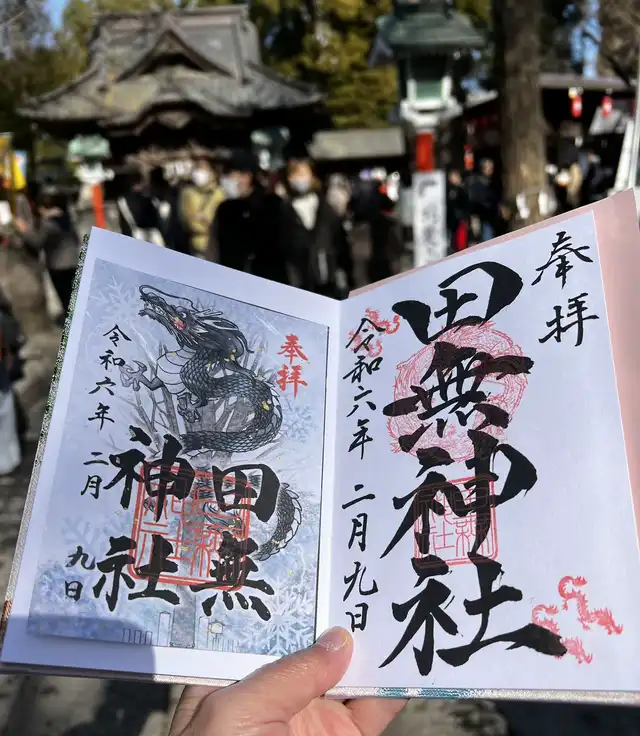 奉拝
田無神社
令和六年 二月九日
奉拝
田無
神社
令和六年 二月
九日